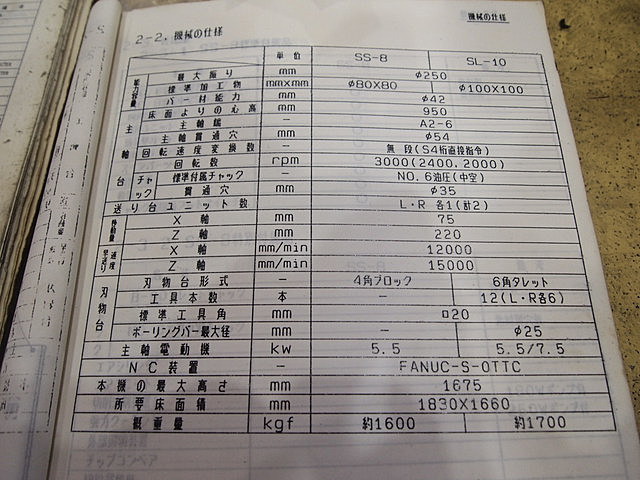 機械の仕様
2-2. 機械の仕様
単位 SS-8 SL-10
能力容量 最大振り mm φ250
標準加工物 mmxmm φ80X80 φ100X100
バー材能力 mm φ42
床面よりの心高 mm 950
主軸台 主軸端 - A2-6
主軸貫通穴 mm φ54
回転速度変換数 - 無段(S4桁直接指令)
回転数 rpm 3000(2400.2000)
チャック 標準付属チャック - NO.6油圧(中空)
貫通穴 mm φ35
送り台ユニット数 - L・R 各1(計2)
移動量 X軸 mm 75
Z軸 mm 220
早送り速度 X軸 mm/min 12000
Z軸 mm/min 15000
刃物台 刃物台形式 - 4角ブロック 6角タレット
工具本数 本 - 12(L・R各6)
標準工具角 mm □20
ボーリングバー最大径 mm - φ25
主軸電動機 kw 5.5 5.5/7.5
NC装置 - FANUC-S-0TTC
本機の最大高さ mm 1675
所要床面積 mm 1830X1660
概重量 kgf 約1600 約1700